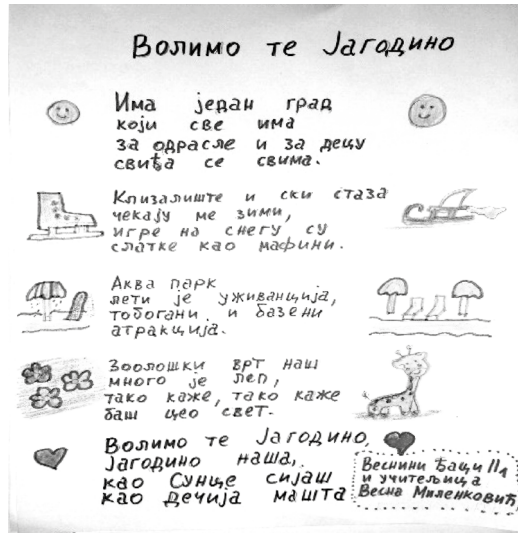 Волимо те Јагодино
Има један град
који све има
за одрасле и за децу
свиђа се свима.
Клизалиште и ски стаза
чекају ме зими,
игре на снегу су
слатке као мафини.
Аква парк
лети је уживанција,
тобогани и базени
атракција.
Зоолошки врт наш
много је леп,
тако каже, тако каже
баш цео свет.
Волимо те Јагодино,
Јагодино наша,
као Сунце сијаш
као дечија машта
Веснини ђаци II1
и учитељица
Весна Миленковић